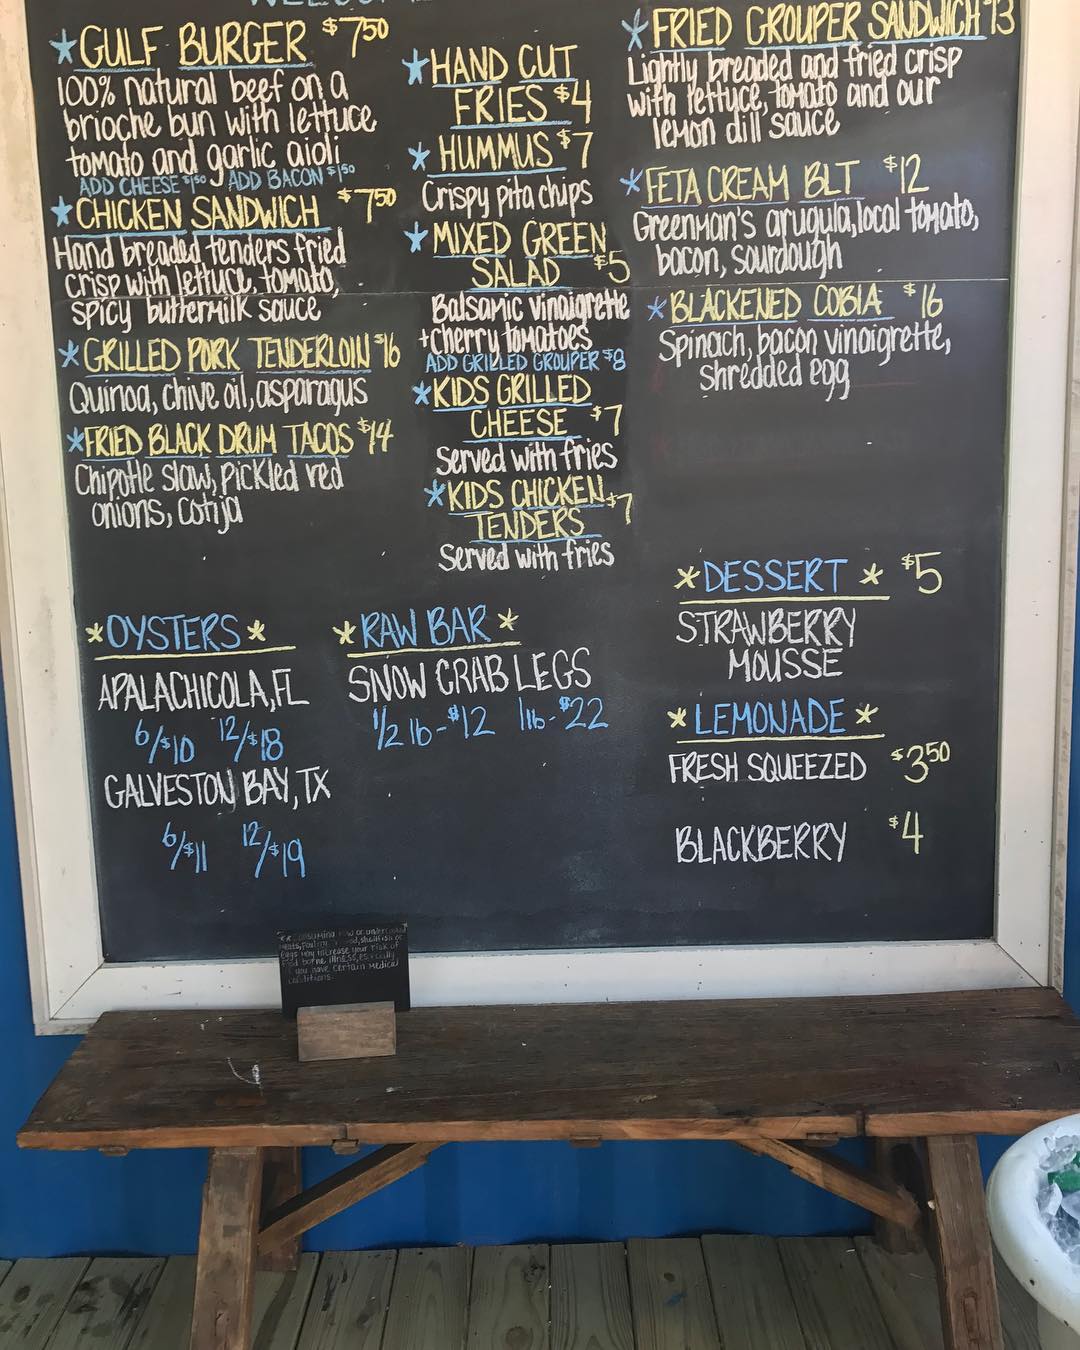 GULF BURGER $7.50
100% natural beef on a
brioche bun with lettuce,
tomato and garlic aioli
ADD CHEESE $1.50 ADD BACON $1.50
CHICKEN SANDWICH $7.50
Hand breaded tenders fried
crisp with lettuce, tomato,
spicy buttermilk sauce
GRILLED PORK TENDERLOIN $16
Quinoa, chive oil, asparagus
FRIED BLACK DRUM TACOS $14
Chipotle slaw, pickled red
onions, cotija
HAND CUT
FRIES $4
HUMMUS $7
Crispy pita chips
MIXED GREEN
SALAD $5
Balsamic vinaigrette
+cherry tomatoes
ADD GRILLED GROUPER $8
KIDS GRILLED
CHEESE $7
Served with fries
KIDS CHICKEN $7
TENDERS
Served with fries
FRIED GROUPER SANDWICH $13
Lightly breaded and fried crisp
with lettuce, tomato and our
lemon dill sauce
FETA CREAM BLT $12
Greenman's arugula, local tomato,
bacon, sourdough
BLACKENED COBIA $16
Spinach, bacon vinaigrette,
shredded egg
*OYSTERS*
APALACHICOLA, FL
6/$10 12/$18
GALVESTON BAY, TX
6/$11 12/$19
*RAW BAR*
SNOW CRAB LEGS
1/2 lb-$12 1lb-$22
*DESSERT* $5
STRAWBERRY
MOUSSE
*LEMONADE*
FRESH SQUEEZED $3.50
BLACKBERRY $4
** Consuming raw or undercooked
meats, poultry, shellfish or
eggs may increase your risk of
food borne illness, especially
if you have certain medical
conditions.